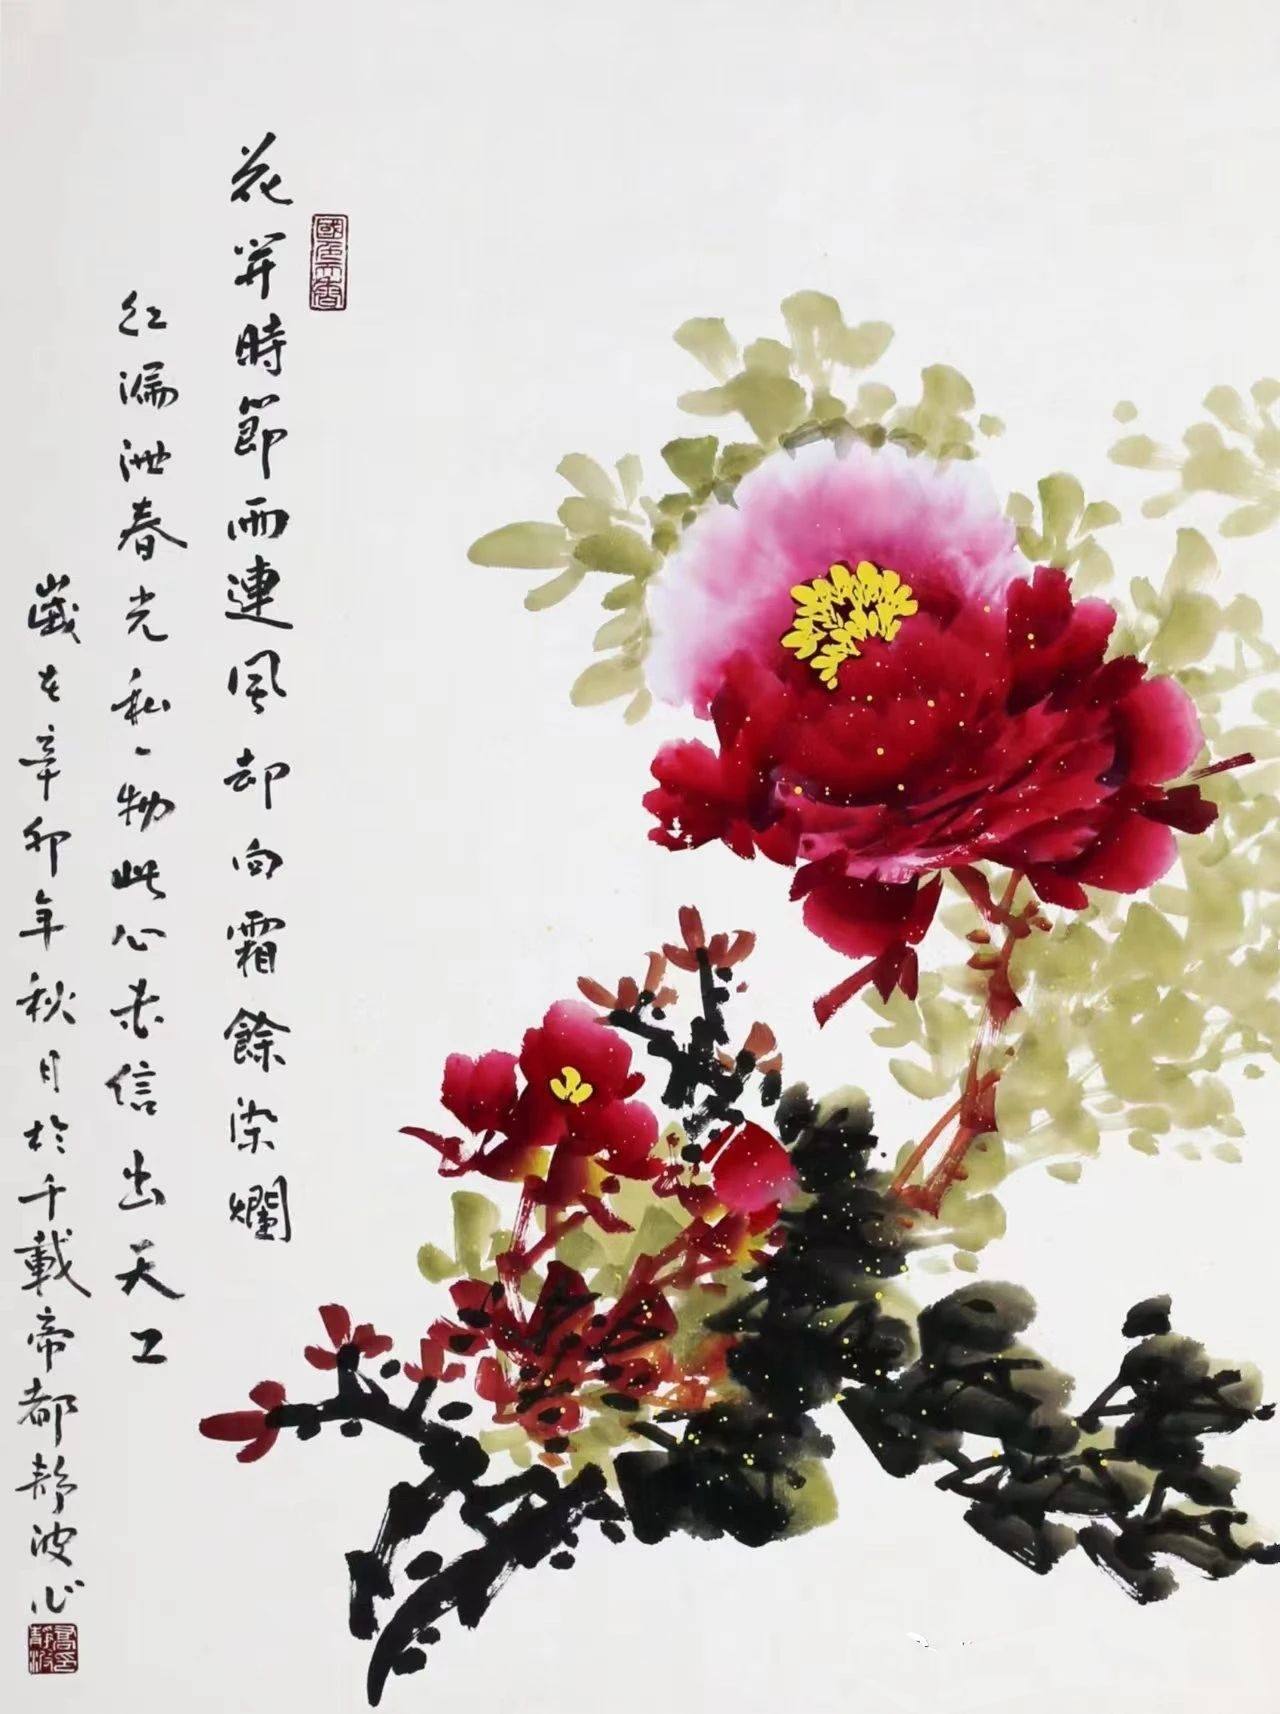 國色天香
花開時節雨連風却向霜餘染爛
紅漏洩春光私一物此心未信出天工
歲在辛卯年秋月於千載帝都靜波心
印靜波